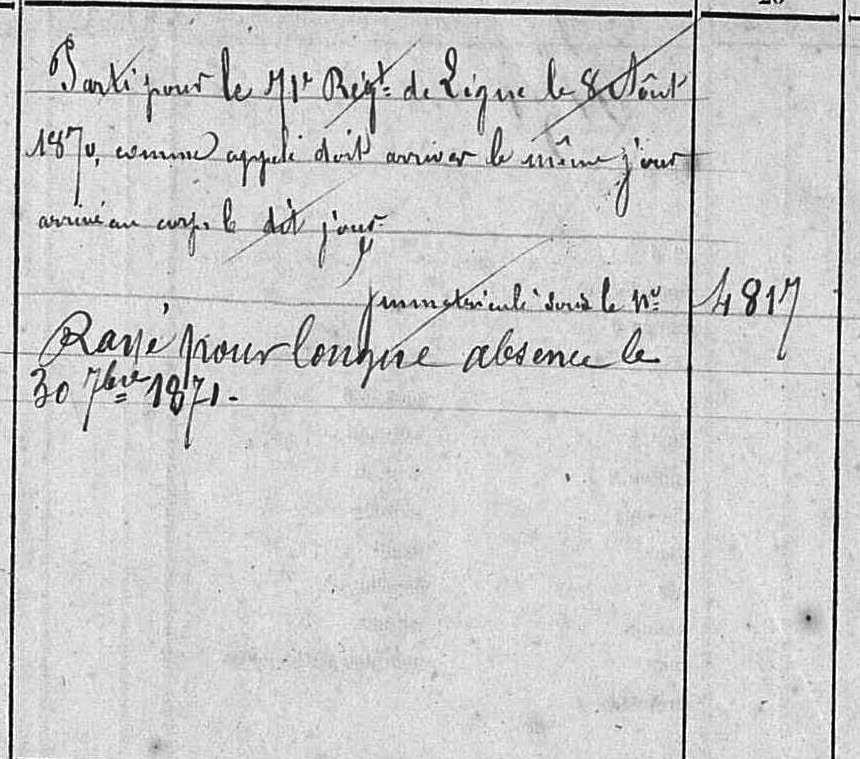 Parti pour le 71e Régt. de Ligne le 8 Août
1870, comme appelé doit arriver le même jour
arrivé au corps le dit jour
Immatriculé sous le No 4817
Rayé pour longue absence le
30 7bre 1871.